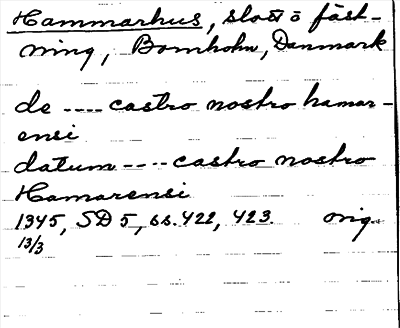 Hammarhus, slott o fäst-
ning, Bornholm, Danmark
de ---- castro nostro hamar-
ensi
datum ---- castro nostro
Hamarensi
1345, SD 5, ss. 422, 423. orig.
13/3